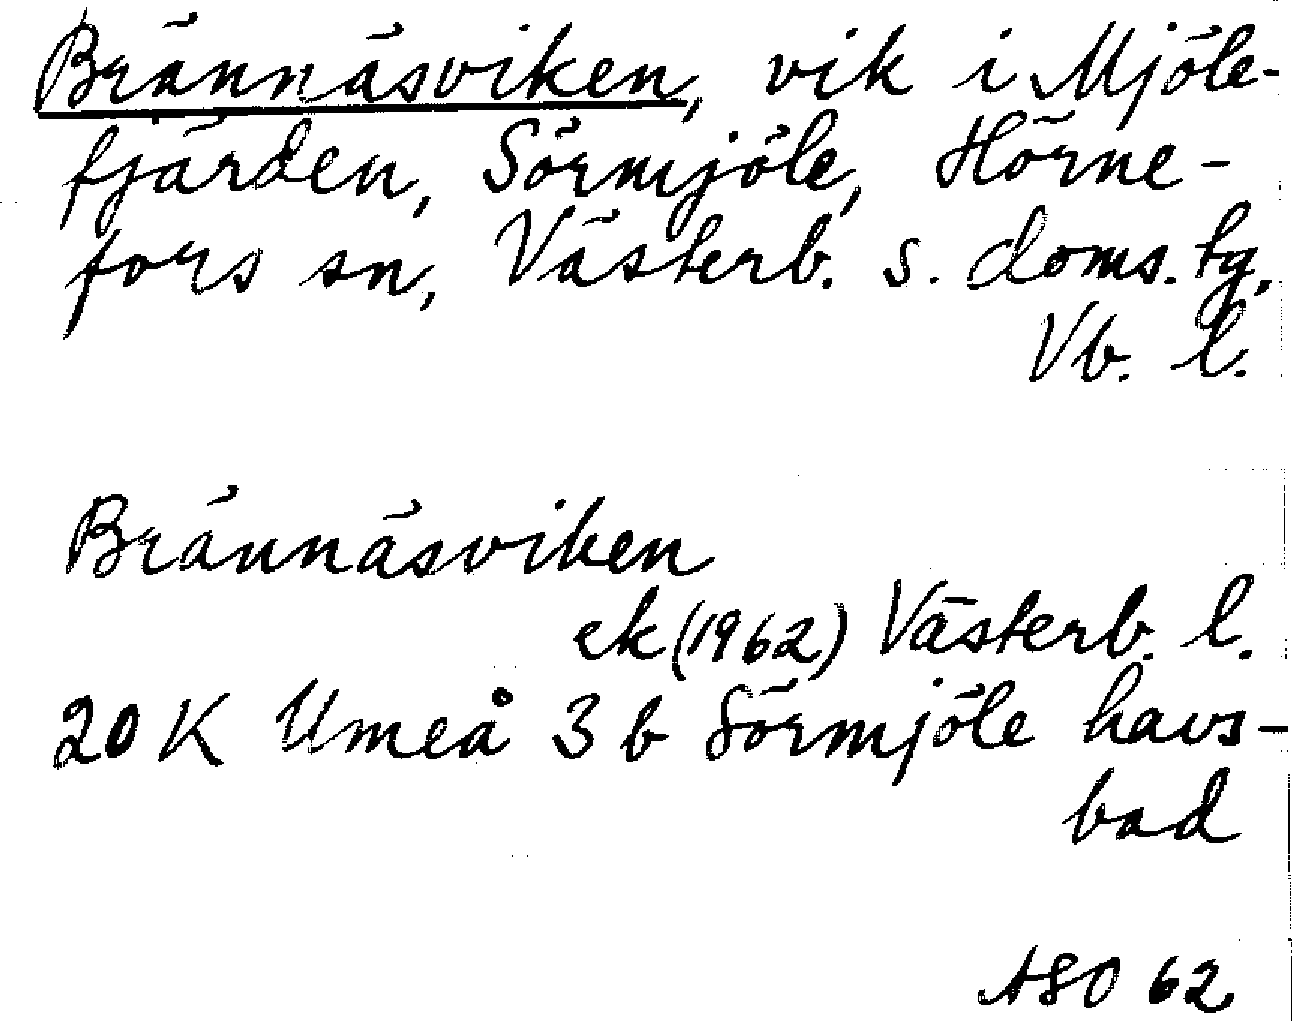 Brännäsviken, vik i Mjöle-
fjärden, Sörmjöle, Hörne-
fors sn, Västerb. s. doms. tg,
Vb. l.
Brännäsviken
ek (1962) Västerb. l.
20 K Umeå 3 b Sörmjöle havs-
bad
ASO 62